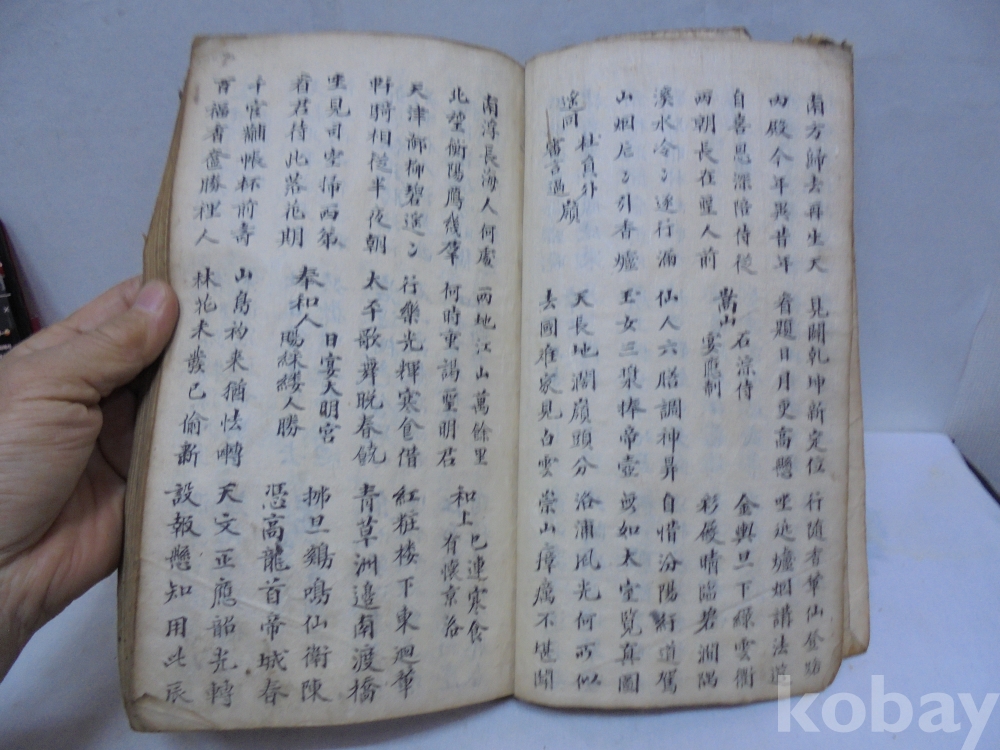 南方歸去再生天
內殿今年異昔年
見闢乾坤新定位
看題日月更高懸
行隨香輦仙登路
坐近爐烟講法筵
自喜恩深陪侍從
兩朝長在聖人前
嵩山
石淙侍
宴應制
金輿旦下綠雲衢
彩殿晴臨碧澗隅
溪水冷〻逐行漏
山烟片〻引香爐
仙人六膳調神鼎
玉女三漿捧帝壺
自惜汾陽紆道駕
無如太室覽真圖
遙同
杜員外
審言過嶺
天長地濶嶺頭分
去國離家見白雲
洛浦風光何所似
崇山瘴癘不堪聞
南浮長海人何處
北望衡陽鴈幾羣
兩地江山萬餘里
何時重謁聖明君
和上
巳連寒食
有懷京洛
天津御柳碧遙〻
軒騎相從半夜朝
行樂光輝寒食借
太平歌舞晚春饒
紅粧樓下東迴輦
青草洲邊南渡橋
坐見司空掃西第
看君侍此落花期
奉和人
日宴大明宮
賜綵縷人勝
拂旦鷄鳴仙衛陳
憑高龍首帝城春
千官黼帳杯前壽
百福香奩勝裡人
山鳥初來猶怯囀
林花未發已偷新
天文正應韶光轉
設報懸知用此辰
kobay